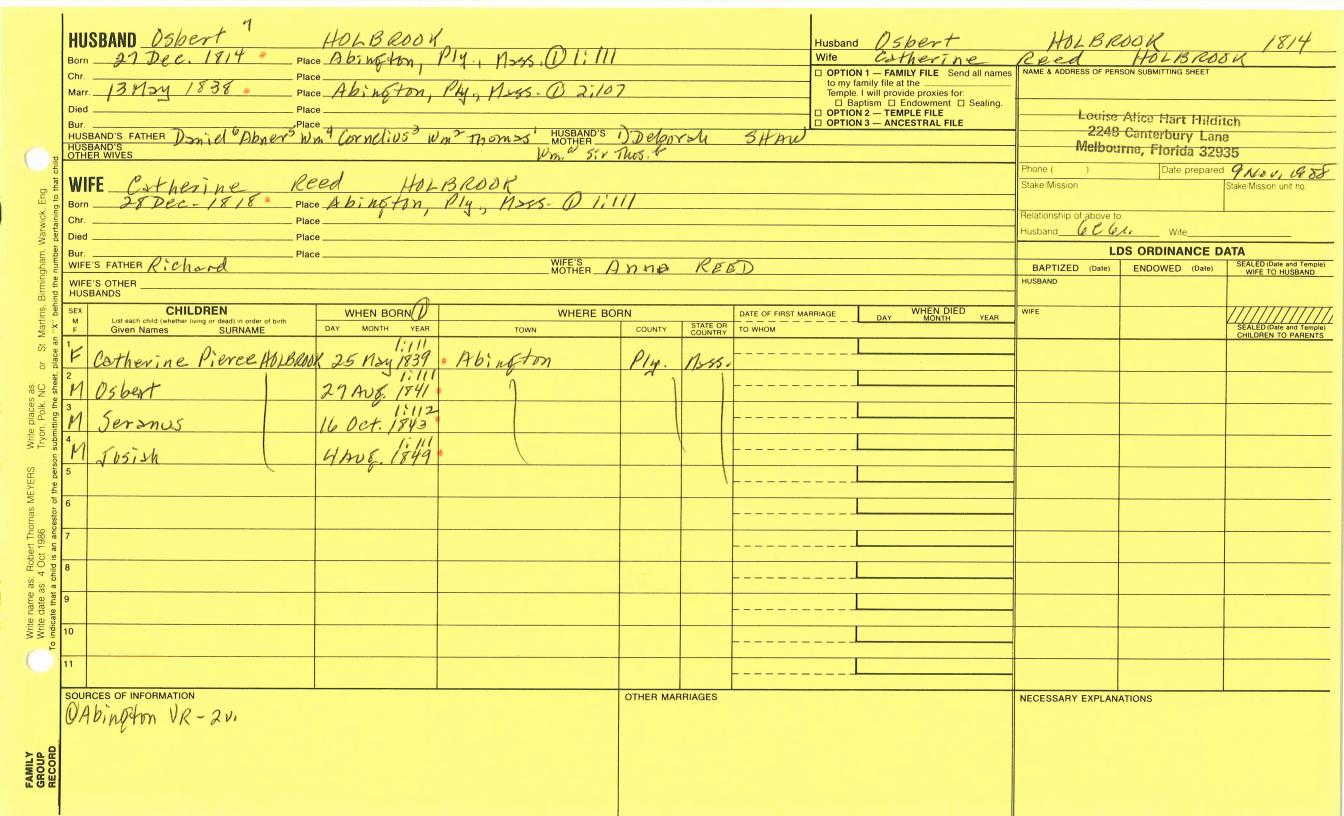 HUSBAND Osbert 7 HOLBROOK
Born 27 Dec. 1814 Place Abington, Ply., Mass. ① 1:111
Chr. Place
Marr. 13 May 1838 Place Abington, Ply., Mass. ① 2:107
Died Place
Bur. Place
HUSBAND'S FATHER Daniel6 Abner5 Wm4 Cornelius3 Wm2 Thomas1 HUSBAND'S MOTHER 1) Deborah SHAW
HUSBAND'S OTHER WIVES Wm.a Sir Thos.b
Husband Osbert HOLBROOK 1814
Wife Catherine Reed HOLBROOK
☐ OPTION 1 — FAMILY FILE Send all names
to my family file at the
Temple. I will provide proxies for:
☐ Baptism ☐ Endowment ☐ Sealing.
☐ OPTION 2 — TEMPLE FILE
☐ OPTION 3 — ANCESTRAL FILE
NAME & ADDRESS OF PERSON SUBMITTING SHEET
Louise Alice Hart Hilditch
2248 Canterbury Lane
Melbourne, Florida 32935
Phone ( ) Date prepared 9 Nov, 1988
Stake/Mission Stake/Mission unit no.
Relationship of above to
Husband 6C6r. Wife
WIFE Catherine Reed HOLBROOK
Born 28 Dec. 1818 Place Abington, Ply., Mass. ① 1:111
Chr. Place
Died Place
Bur. Place
WIFE'S FATHER Richard WIFE'S MOTHER Anna REED
WIFE'S OTHER HUSBANDS
LDS ORDINANCE DATA
BAPTIZED (Date) ENDOWED (Date) SEALED (Date and Temple) WIFE TO HUSBAND
HUSBAND
WIFE
SEALED (Date and Temple) CHILDREN TO PARENTS
SEX M F CHILDREN WHEN BORN ① WHERE BORN DATE OF FIRST MARRIAGE WHEN DIED
List each child (whether living or dead) in order of birth
Given Names SURNAME DAY MONTH YEAR TOWN COUNTY STATE OR COUNTRY TO WHOM DAY MONTH YEAR
1 F Catherine Pierce HOLBROOK 25 May 1839 1:111 Abington Ply. Mass.
2 M Osbert 27 Aug. 1841 1:111
3 M Seranus 16 Oct. 1843 1:112
4 M Josiah 4 Aug. 1849 1:111
5
6
7
8
9
10
11
SOURCES OF INFORMATION
① Abington VR - 2v.
OTHER MARRIAGES
NECESSARY EXPLANATIONS
Write name as: Robert Thomas MEYERS Write places as Tryon, Polk, NC or St. Martins, Birmingham, Warwick, Eng.
Write date as: 4 Oct 1986
To indicate that a child is an ancestor of the person submitting the sheet, place an "X" behind the number pertaining to that child
FAMILY
GROUP
RECORD